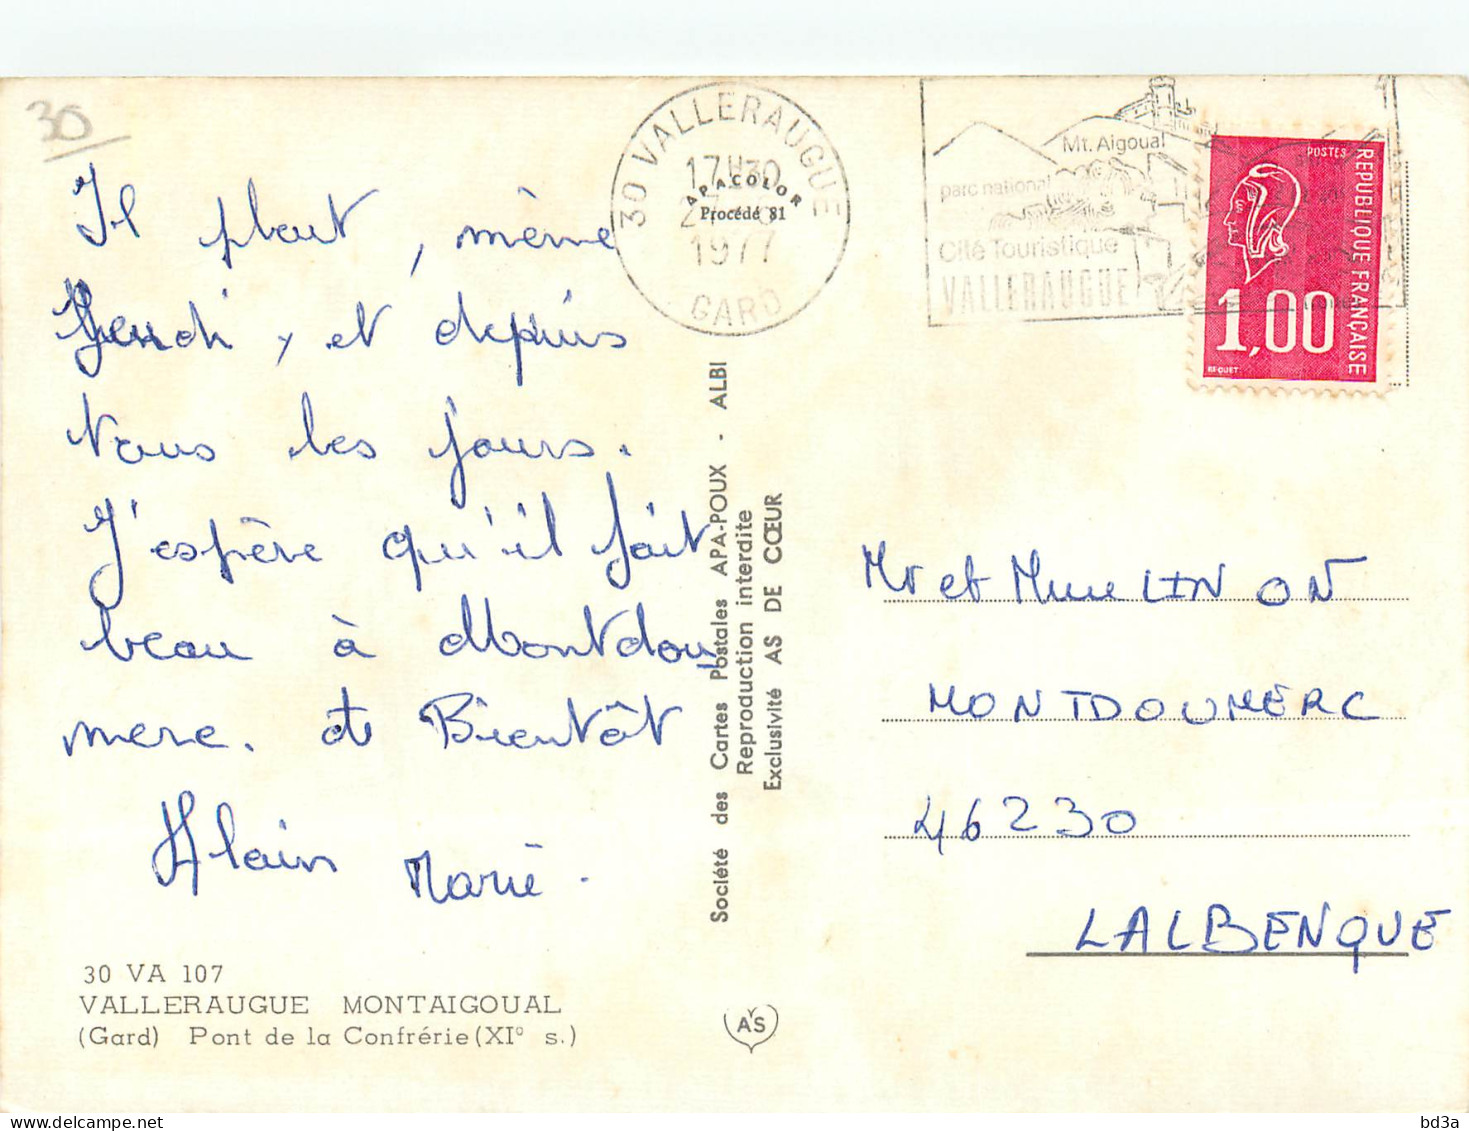 30
Il pleut, même
Jeudi, et depuis
tous les jours.
J'espère qu'il fait
beau à Montdou
merc. à Bientôt
Alain Marie.
30 VA 107
VALLERAUGUE MONTAIGOUAL
(Gard) Pont de la Confrérie (XI° s.)
30 VALLERAUGUE
17H30
1977
GARD
APACOLOR
Procédé 81
Société des Cartes Postales APA-POUX - ALBI
Reproduction interdite
Exclusivité AS DE CŒUR
AS
Mt. Aigoual
parc national
Cité Touristique
VALLERAUGUE
POSTES
REPUBLIQUE FRANÇAISE
1,00
BEQUET
Mr et Mme LINON
MONTDOUMERC
46230
LALBENQUE
bd3a